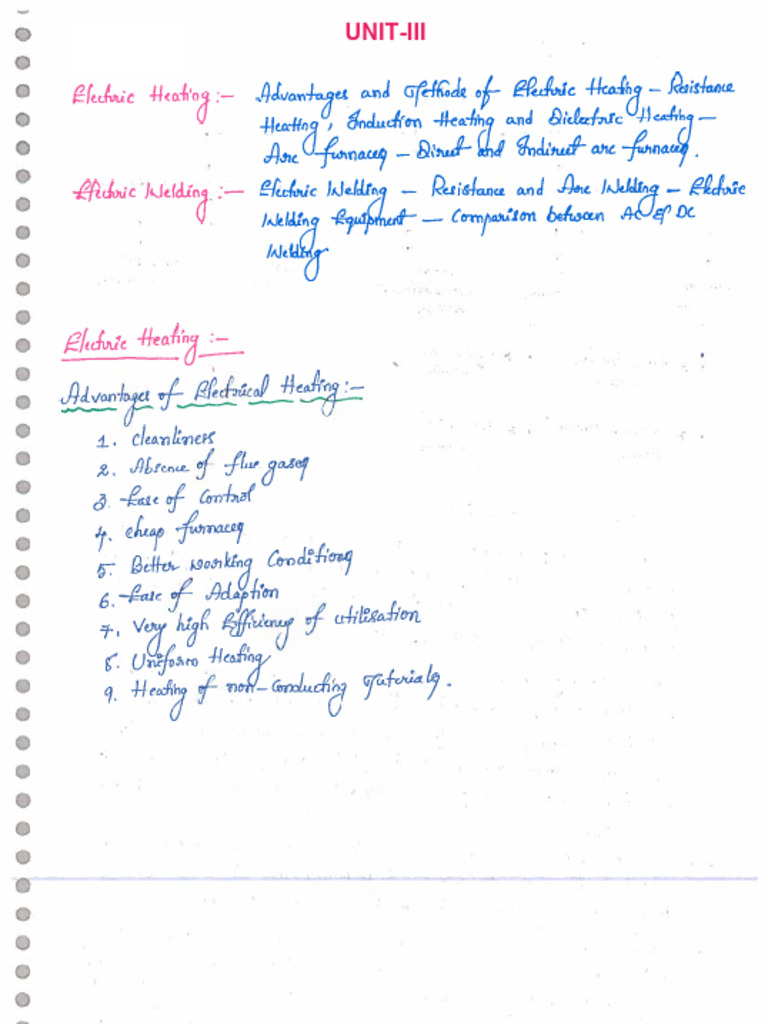 UNIT-III
Electric Heating :- Advantages and Methods of Electric Heating – Resistance
Heating, Induction Heating and Dielectric Heating –
Arc furnaces – Direct and Indirect arc furnaces.
Electric Welding :- Electric Welding – Resistance and Arc Welding – Electric
Welding Equipment – Comparison between AC & DC
Welding
Electric Heating :-
Advantages of Electrical Heating :-
1. Cleanliness
2. Absence of flue gases
3. Ease of Control
4. Cheap furnaces
5. Better working Conditions
6. Ease of Adaption
7. Very high Efficiency of utilisation
8. Uniform Heating
9. Heating of non-Conducting Materials.